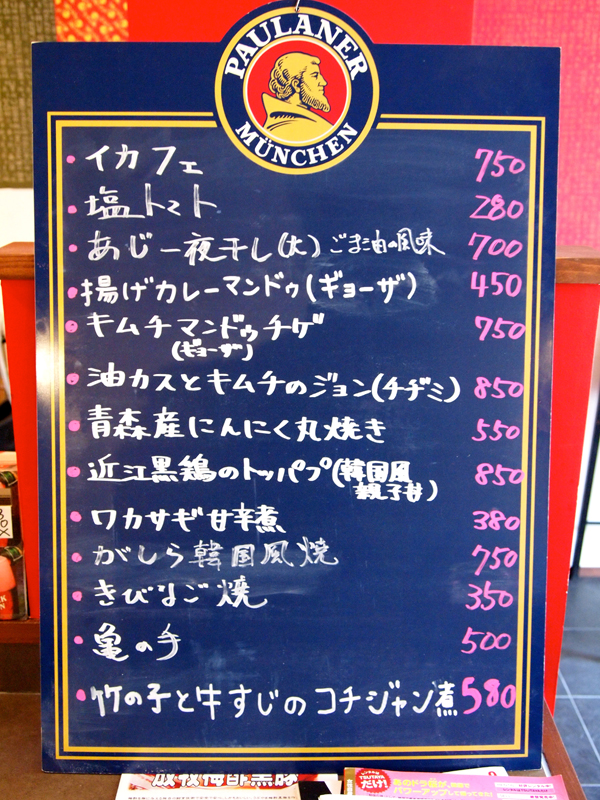 PAULANER
MÜNCHEN
・イカフェ 750
・塩トマト 280
・あじ一夜干し(大)ごま油の風味 700
・揚げカレーマンドゥ(ギョーザ) 450
・キムチマンドゥチゲ 750
(ギョーザ)
・油カスとキムチのジョン(チヂミ) 850
・青森産にんにく丸焼き 550
・近江黒鶏のトッパプ(韓国風 850
親子丼)
・ワカサギ甘辛煮 380
・がしら韓国風焼 750
・きびなご焼 350
・亀の手 500
・竹の子と牛すじのコチジャン煮 580
TSUTAYA
だけ!
あのドラ
パワーアップして